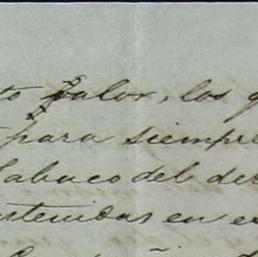 to valor, los q
para siempre
Tabaco del der
stenidas en e